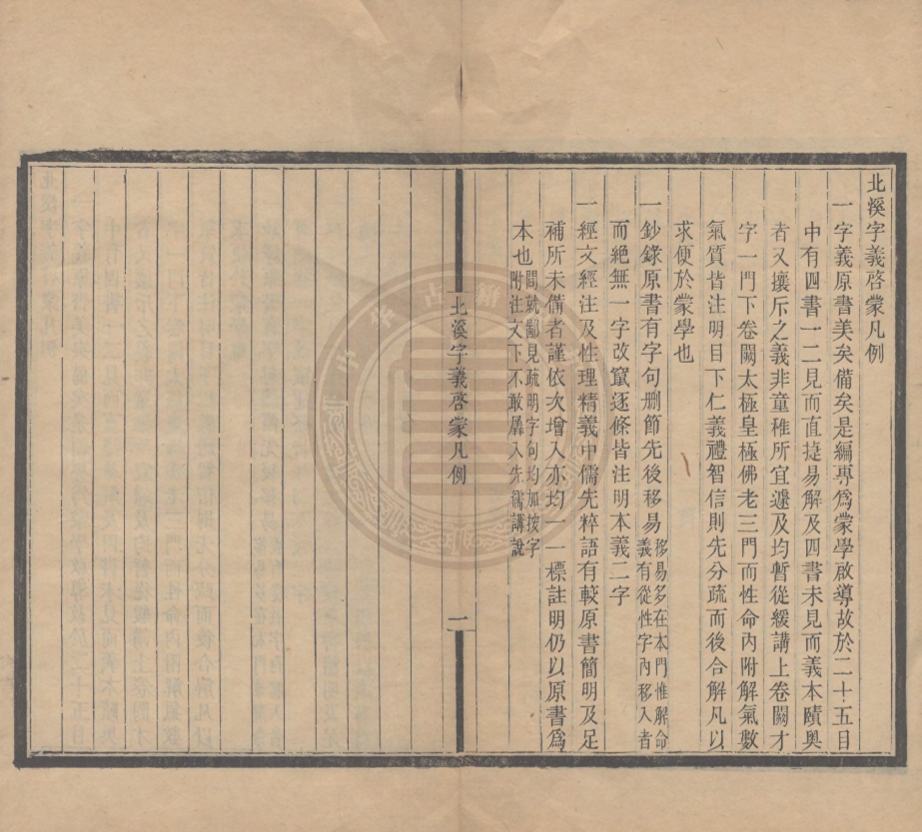 北溪字義啓蒙凡例
一字義原書美矣備矣是編專爲蒙學啟導故於二十五目
中有四書一二見而直捷易解及四書未見而義本賾奥
者又攘斥之義非童稚所宜遽及均暫從緩講上卷闕才
字一門下卷闕太極皇極佛老三門而性命内附解氣數
氣質皆注明目下仁義禮智信則先分疏而後合解凡以
求便於蒙學也
一鈔錄原書有字句刪節先後移易移易多在本門惟解命
義有從性字內移入者
而絶無一字改竄逐條皆注明本義二字
一經文經注及性理精義中儒先粹語有較原書簡明及足
補所未備者謹依次增入亦均一一標註明仍以原書爲
本也間就鄙見疏明字句均加按字
附注文下不敢羼入先儒講說
北溪字義啓蒙凡例
一